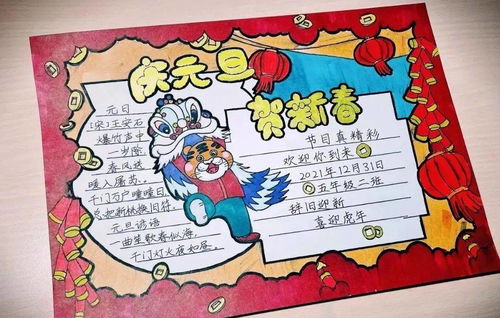 庆元旦
贺新春
元日
(宋)王安石
爆竹声中
一岁除
春风送
暖入屠苏。
千门万户曈曈日
总把新桃换旧符。
元旦谚语
一曲笙歌春似海,
千门灯火夜如昼。
节目真精彩
欢迎你到来
2021年12月31日
五年级二班
辞旧迎新
喜迎虎年